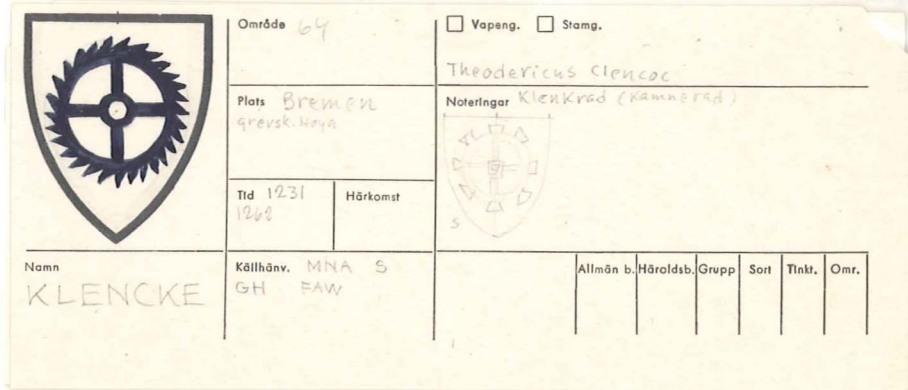 Område 64
Vapeng. Stamg.
Theodericus Clencoc
Plats Bremen
grevsk. Hoya
Noteringar Klenkrad (Kamnerad)
S
Tid 1231
1262
Härkomst
Namn
KLENCKE
Källhänv. MNA S
GH FAW
Allmän b. Häroldsb. Grupp Sort Tinkt. Omr.